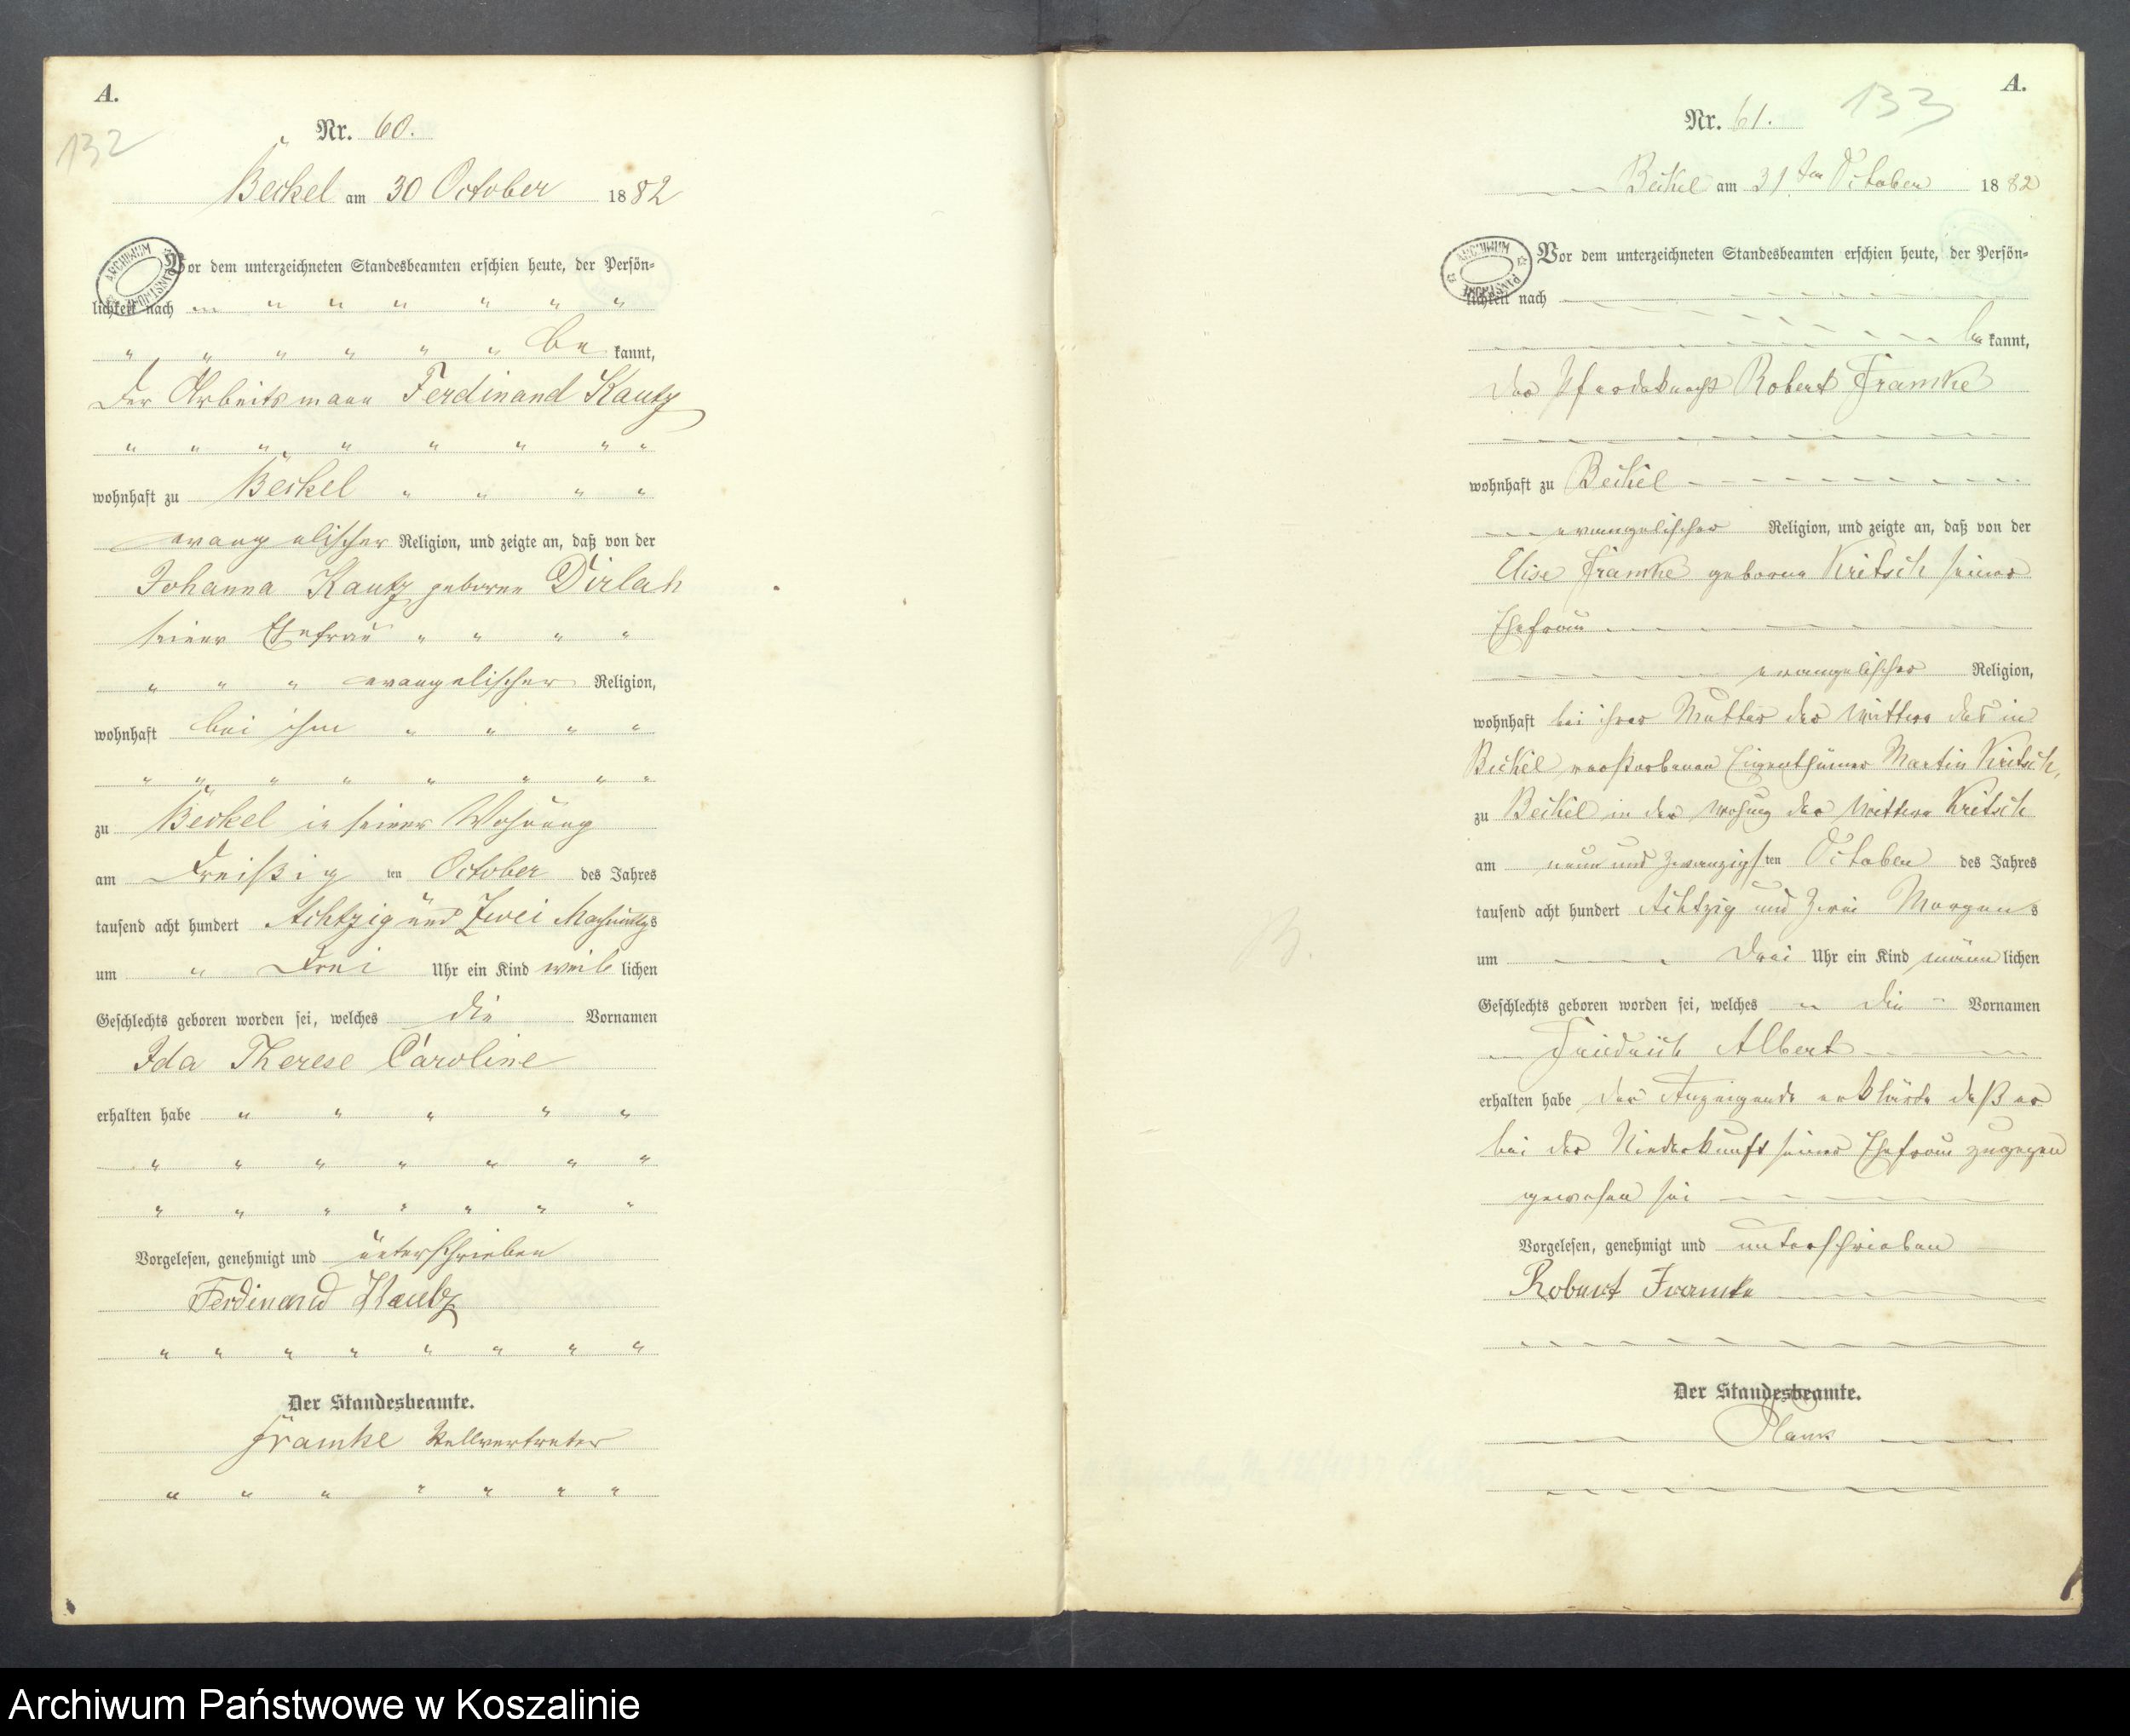 A.
132
Nr. 60.
Beckel am 30 October 1882
ARCHIWUM PAŃSTWOWE
Vor dem unterzeichneten Standesbeamten erschien heute, der Persön-
lichkeit nach " " " " " " "
" " " " " " be kannt,
Der Arbeitsmann Ferdinand Kautz
" " " " " " " "
wohnhaft zu Beckel " " " "
evangelischer Religion, und zeigte an, daß von der
Johanna Kautz geborne Dirlah
seiner Ehefrau " " " "
" " " evangelischer Religion,
wohnhaft bei ihm " " " "
" " " " " " " "
zu Beckel in seiner Wohnung
am Dreißig ten October des Jahres
tausend acht hundert Achtzig und Zwei Nachmittags
um " Drei Uhr ein Kind weib lichen
Geschlechts geboren worden sei, welches die Vornamen
Ida Therese Caroline
erhalten habe " " " " "
" " " " " " "
" " " " " " "
Vorgelesen, genehmigt und unterschrieben
Ferdinand Kautz
" " " " " " " "
Der Standesbeamte.
Framke Stellvertreter
" " " " " " "
A.
133
Nr. 61.
Beckel am 31 ten October 1882
ARCHIWUM PAŃSTWOWE
Vor dem unterzeichneten Standesbeamten erschien heute, der Persön-
lichkeit nach
be kannt,
der Pferdeknecht Robert Framke
wohnhaft zu Beckel
evangelischer Religion, und zeigte an, daß von der
Elise Framke geborne Kritsch seiner
Ehefrau
evangelischer Religion,
wohnhaft bei ihrer Mutter der Wittwe des in
Beckel verstorbenen Eigenthümer Martin Kritsch,
zu Beckel in der Wohung der Wittwe Kritsch
am neun und zwanzigsten October des Jahres
tausend acht hundert Achtzig und Zwei Morgens
um Drei Uhr ein Kind männ lichen
Geschlechts geboren worden sei, welches die Vornamen
Friedrich Albert
erhalten habe der Anzeigende erklärte daß er
bei der Niederkunft seiner Ehefrau zugegen
gewesen sei
Vorgelesen, genehmigt und unterschrieben
Robert Framke
Der Standesbeamte.
Archiwum Państwowe w Koszalinie